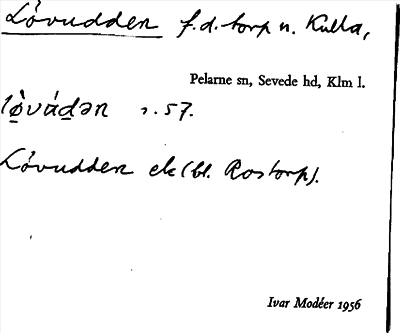 Lövudden f.d. torp u. Kulla,
Pelarne sn, Sevede hd, Klm l.
57.
Lövudden ek (bl. Rostorp).
Ivar Modéer 1956